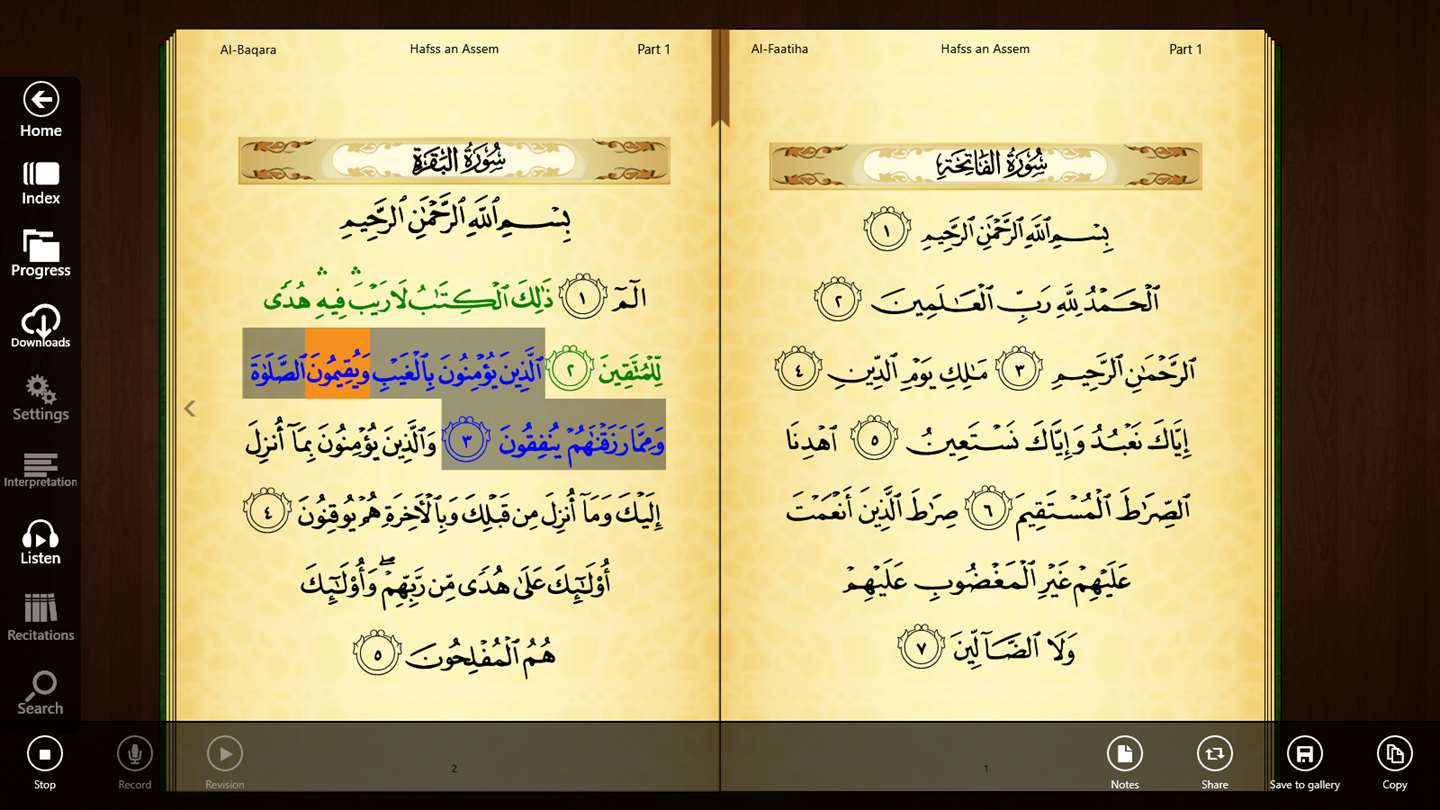 Home
Index
Progress
Downloads
Settings
Interpretation
Listen
Recitations
Search
Al-Faatiha Hafss an Assem Part 1
سُورَةُ الفَاتِحَةِ
بِسْمِ ٱللَّهِ ٱلرَّحْمَٰنِ ٱلرَّحِيمِ ١
ٱلْحَمْدُ لِلَّهِ رَبِّ ٱلْعَٰلَمِينَ ٢
ٱلرَّحْمَٰنِ ٱلرَّحِيمِ ٣ مَٰلِكِ يَوْمِ ٱلدِّينِ ٤
إِيَّاكَ نَعْبُدُ وَإِيَّاكَ نَسْتَعِينُ ٥ ٱهْدِنَا
ٱلصِّرَٰطَ ٱلْمُسْتَقِيمَ ٦ صِرَٰطَ ٱلَّذِينَ أَنْعَمْتَ
عَلَيْهِمْ غَيْرِ ٱلْمَغْضُوبِ عَلَيْهِمْ
وَلَا ٱلضَّآلِّينَ ٧
1
Al-Baqara Hafss an Assem Part 1
سُورَةُ البَقَرَةِ
بِسْمِ ٱللَّهِ ٱلرَّحْمَٰنِ ٱلرَّحِيمِ
الٓمٓ ١ ذَٰلِكَ ٱلْكِتَٰبُ لَا رَيْبَۛ فِيهِۛ هُدًى
لِّلْمُتَّقِينَ ٢ ٱلَّذِينَ يُؤْمِنُونَ بِٱلْغَيْبِ وَيُقِيمُونَ ٱلصَّلَوٰةَ
وَمِمَّا رَزَقْنَٰهُمْ يُنفِقُونَ ٣ وَٱلَّذِينَ يُؤْمِنُونَ بِمَآ أُنزِلَ
إِلَيْكَ وَمَآ أُنزِلَ مِن قَبْلِكَ وَبِٱلْأَخِرَةِ هُمْ يُوقِنُونَ ٤
أُو۟لَٰٓئِكَ عَلَىٰ هُدًى مِّن رَّبِّهِمْۖ وَأُو۟لَٰٓئِكَ
هُمُ ٱلْمُفْلِحُونَ ٥
2
Stop
Record
Revision
Notes
Share
Save to gallery
Copy